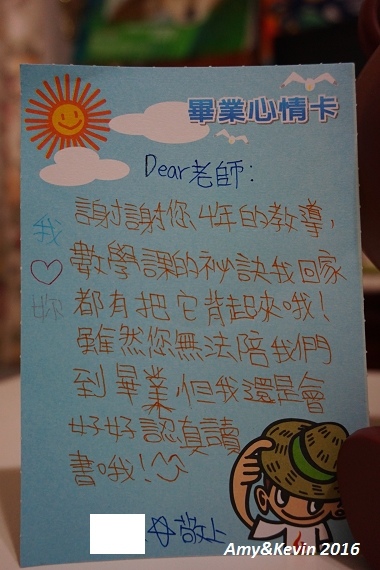 畢業心情卡
Dear老師:
謝謝您4年的教導,
數學課的祕訣我回家
都有把它背起來哦!
雖然您無法陪我們
到畢業,但我還是會
好好認真讀
書哦!
我
妳
敬上
Amy&Kevin 2016